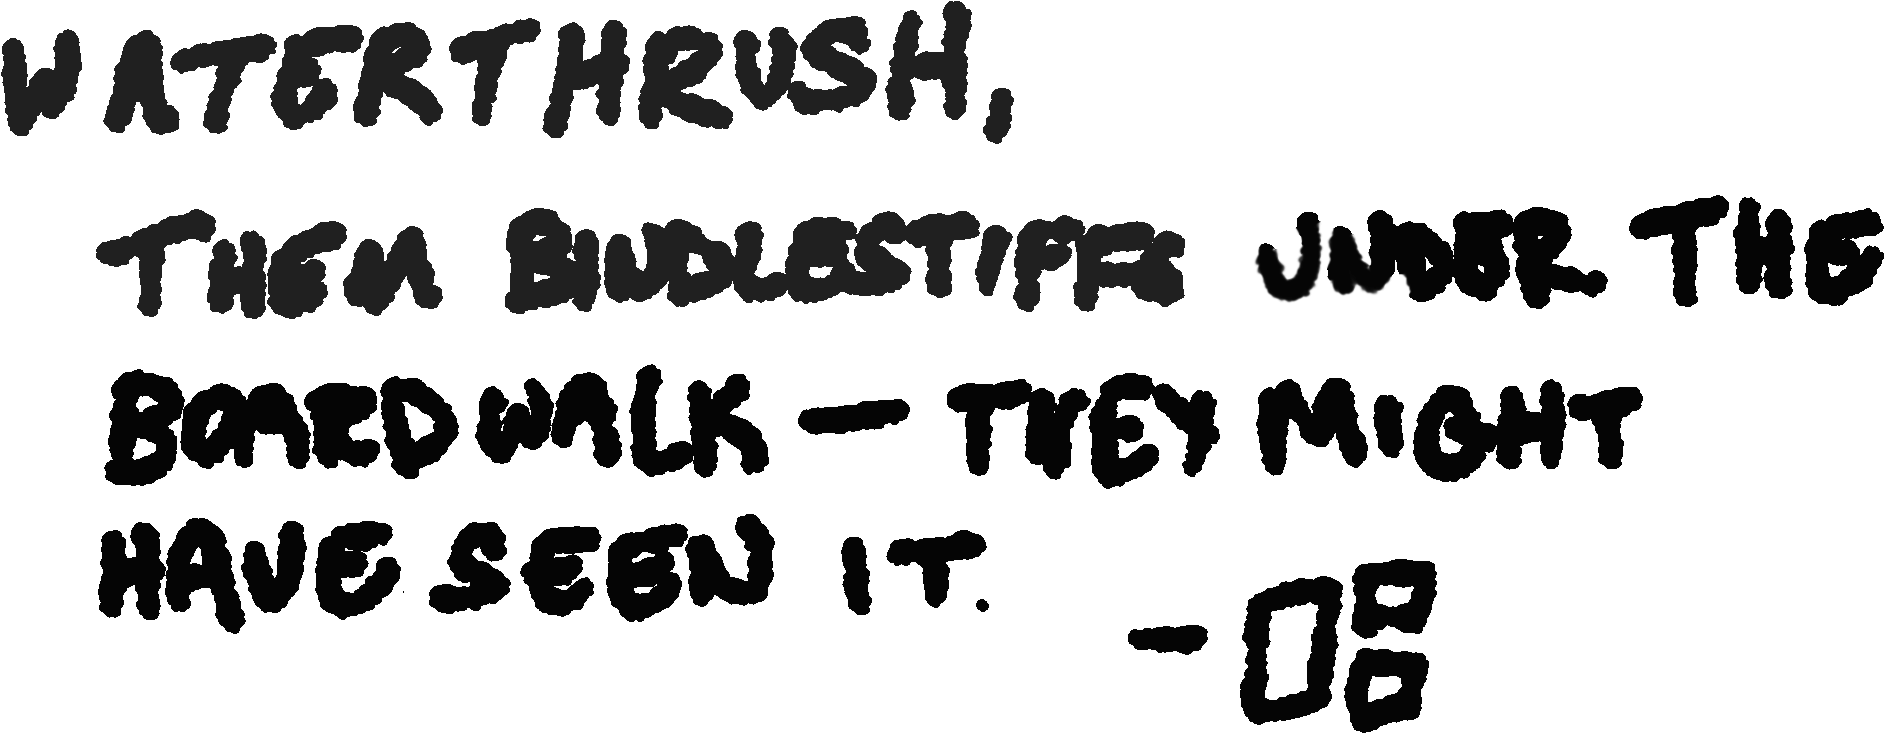 WATERTHRUSH,
THEM BINDLESTIFFS UNDER THE
BOARDWALK — THEY MIGHT
HAVE SEEN IT.
—